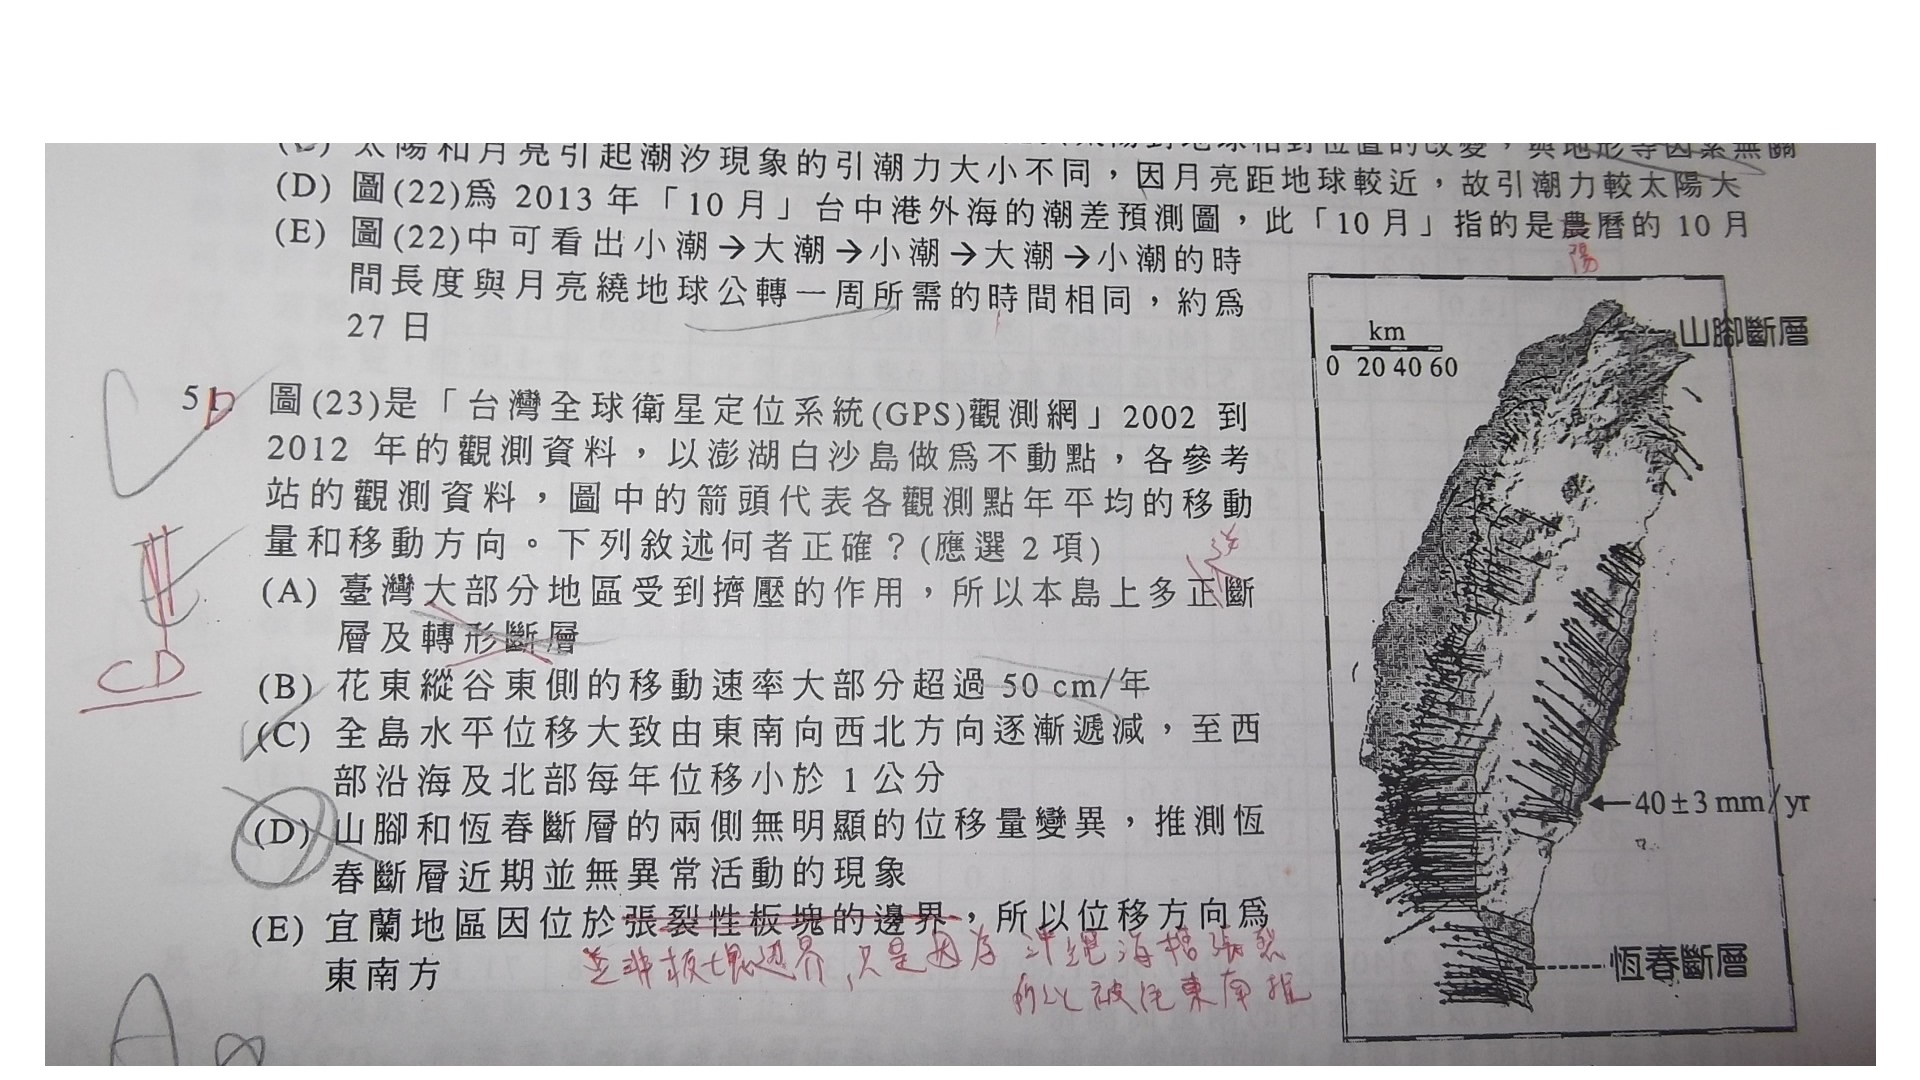 太陽和月亮引起潮汐現象的引潮力大小不同，因月亮距地球較近，故引潮力較太陽大
(D) 圖(22)為 2013 年「10 月」台中港外海的潮差預測圖，此「10 月」指的是農曆的 10 月
陽
(E) 圖(22)中可看出小潮→大潮→小潮→大潮→小潮的時
間長度與月亮繞地球公轉一周所需的時間相同，約為
27 日
圖(23)是「台灣全球衛星定位系統(GPS)觀測網」2002 到
2012 年的觀測資料，以澎湖白沙島做為不動點，各參考
站的觀測資料，圖中的箭頭代表各觀測點年平均的移動
量和移動方向。下列敘述何者正確？(應選 2 項)
逆
(A) 臺灣大部分地區受到擠壓的作用，所以本島上多正斷
層及轉形斷層
(B) 花東縱谷東側的移動速率大部分超過 50 cm/年
(C) 全島水平位移大致由東南向西北方向逐漸遞減，至西
部沿海及北部每年位移小於 1 公分
(D) 山腳和恆春斷層的兩側無明顯的位移量變異，推測恆
春斷層近期並無異常活動的現象
(E) 宜蘭地區因位於張裂性板塊的邊界，所以位移方向為
東南方
並非板塊邊界，只是因為沖繩海槽張裂
所以被往東南推
CD
km
0 20 40 60
山腳斷層
40±3 mm/yr
恆春斷層